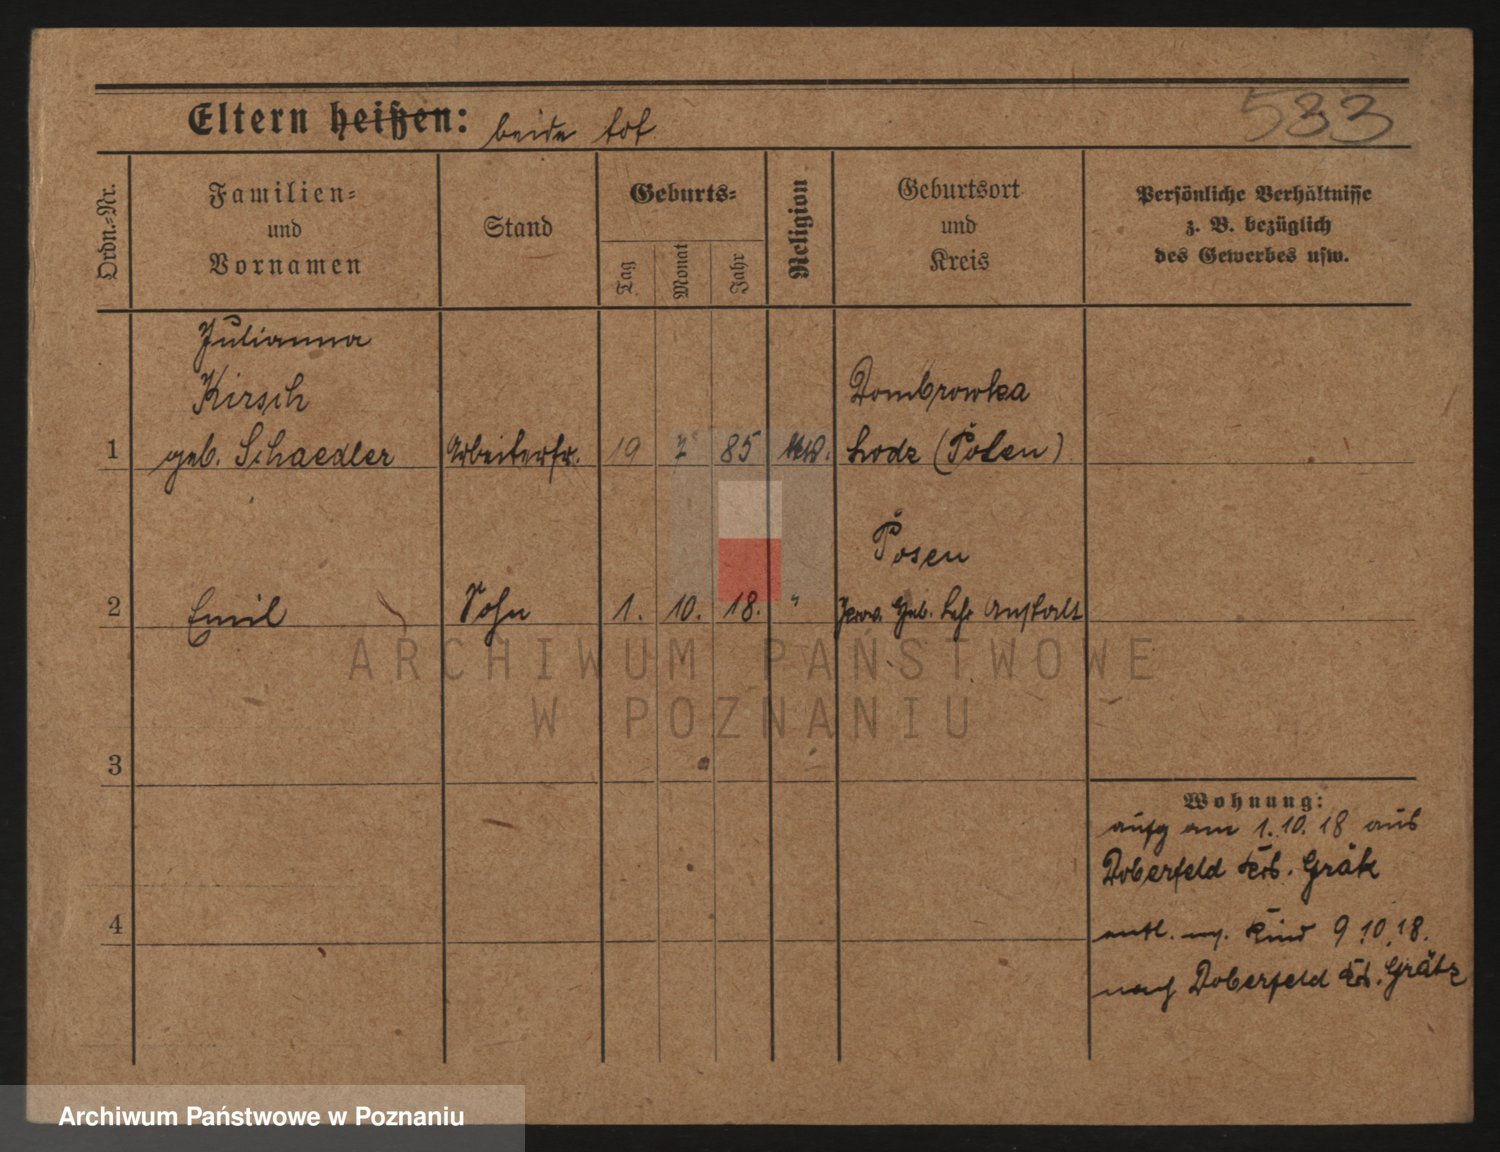 533
Eltern heißen: beide tot
Ordn.=Nr.
Familien=
und
Vornamen
Stand
Geburts=
Tag
Monat
Jahr
Religion
Geburtsort
und
Kreis
Persönliche Verhältnisse
z. B. bezüglich
des Gewerbes usw.
Julianna
Kirsch
1 geb. Schaedler Arbeiterfr. 19 7 85
Dombrowka
Lodz (Polen)
Posen
2 Emil Sohn 1. 10. 18. "
Prov. Heb. Lehr Anstalt
3
4
Wohnung:
aufg am 1.10.18 aus
Doberfeld Krs. Grätz
entl. m. Kind 9.10.18.
nach Doberfeld Krs. Grätz
ARCHIWUM PAŃSTWOWE
W POZNANIU
Archiwum Państwowe w Poznaniu